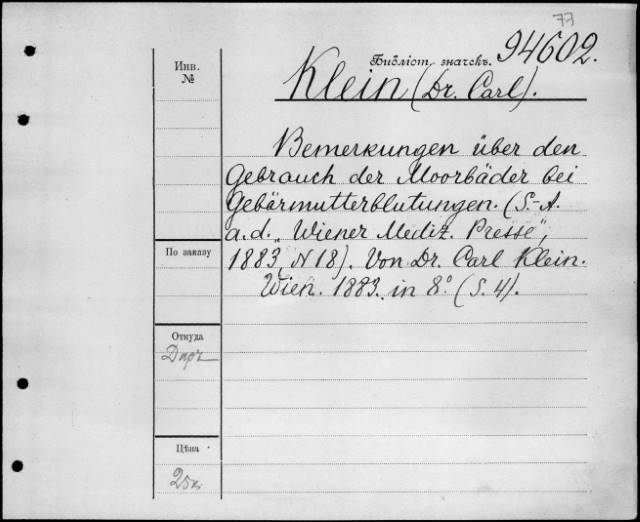 77
94602.
Инв.
№
Библіот. значекъ.
Klein (Dr. Carl).
Bemerkungen über den
Gebrauch der Moorbäder bei
Gebärmutterblutungen. (S.-A.
a. d. „Wiener Mediz. Presse",
1883, N 18). Von Dr. Carl Klein.
Wien. 1883. in 8° (S. 4).
По заказу
Откуда
Даръ
Цѣна
25к